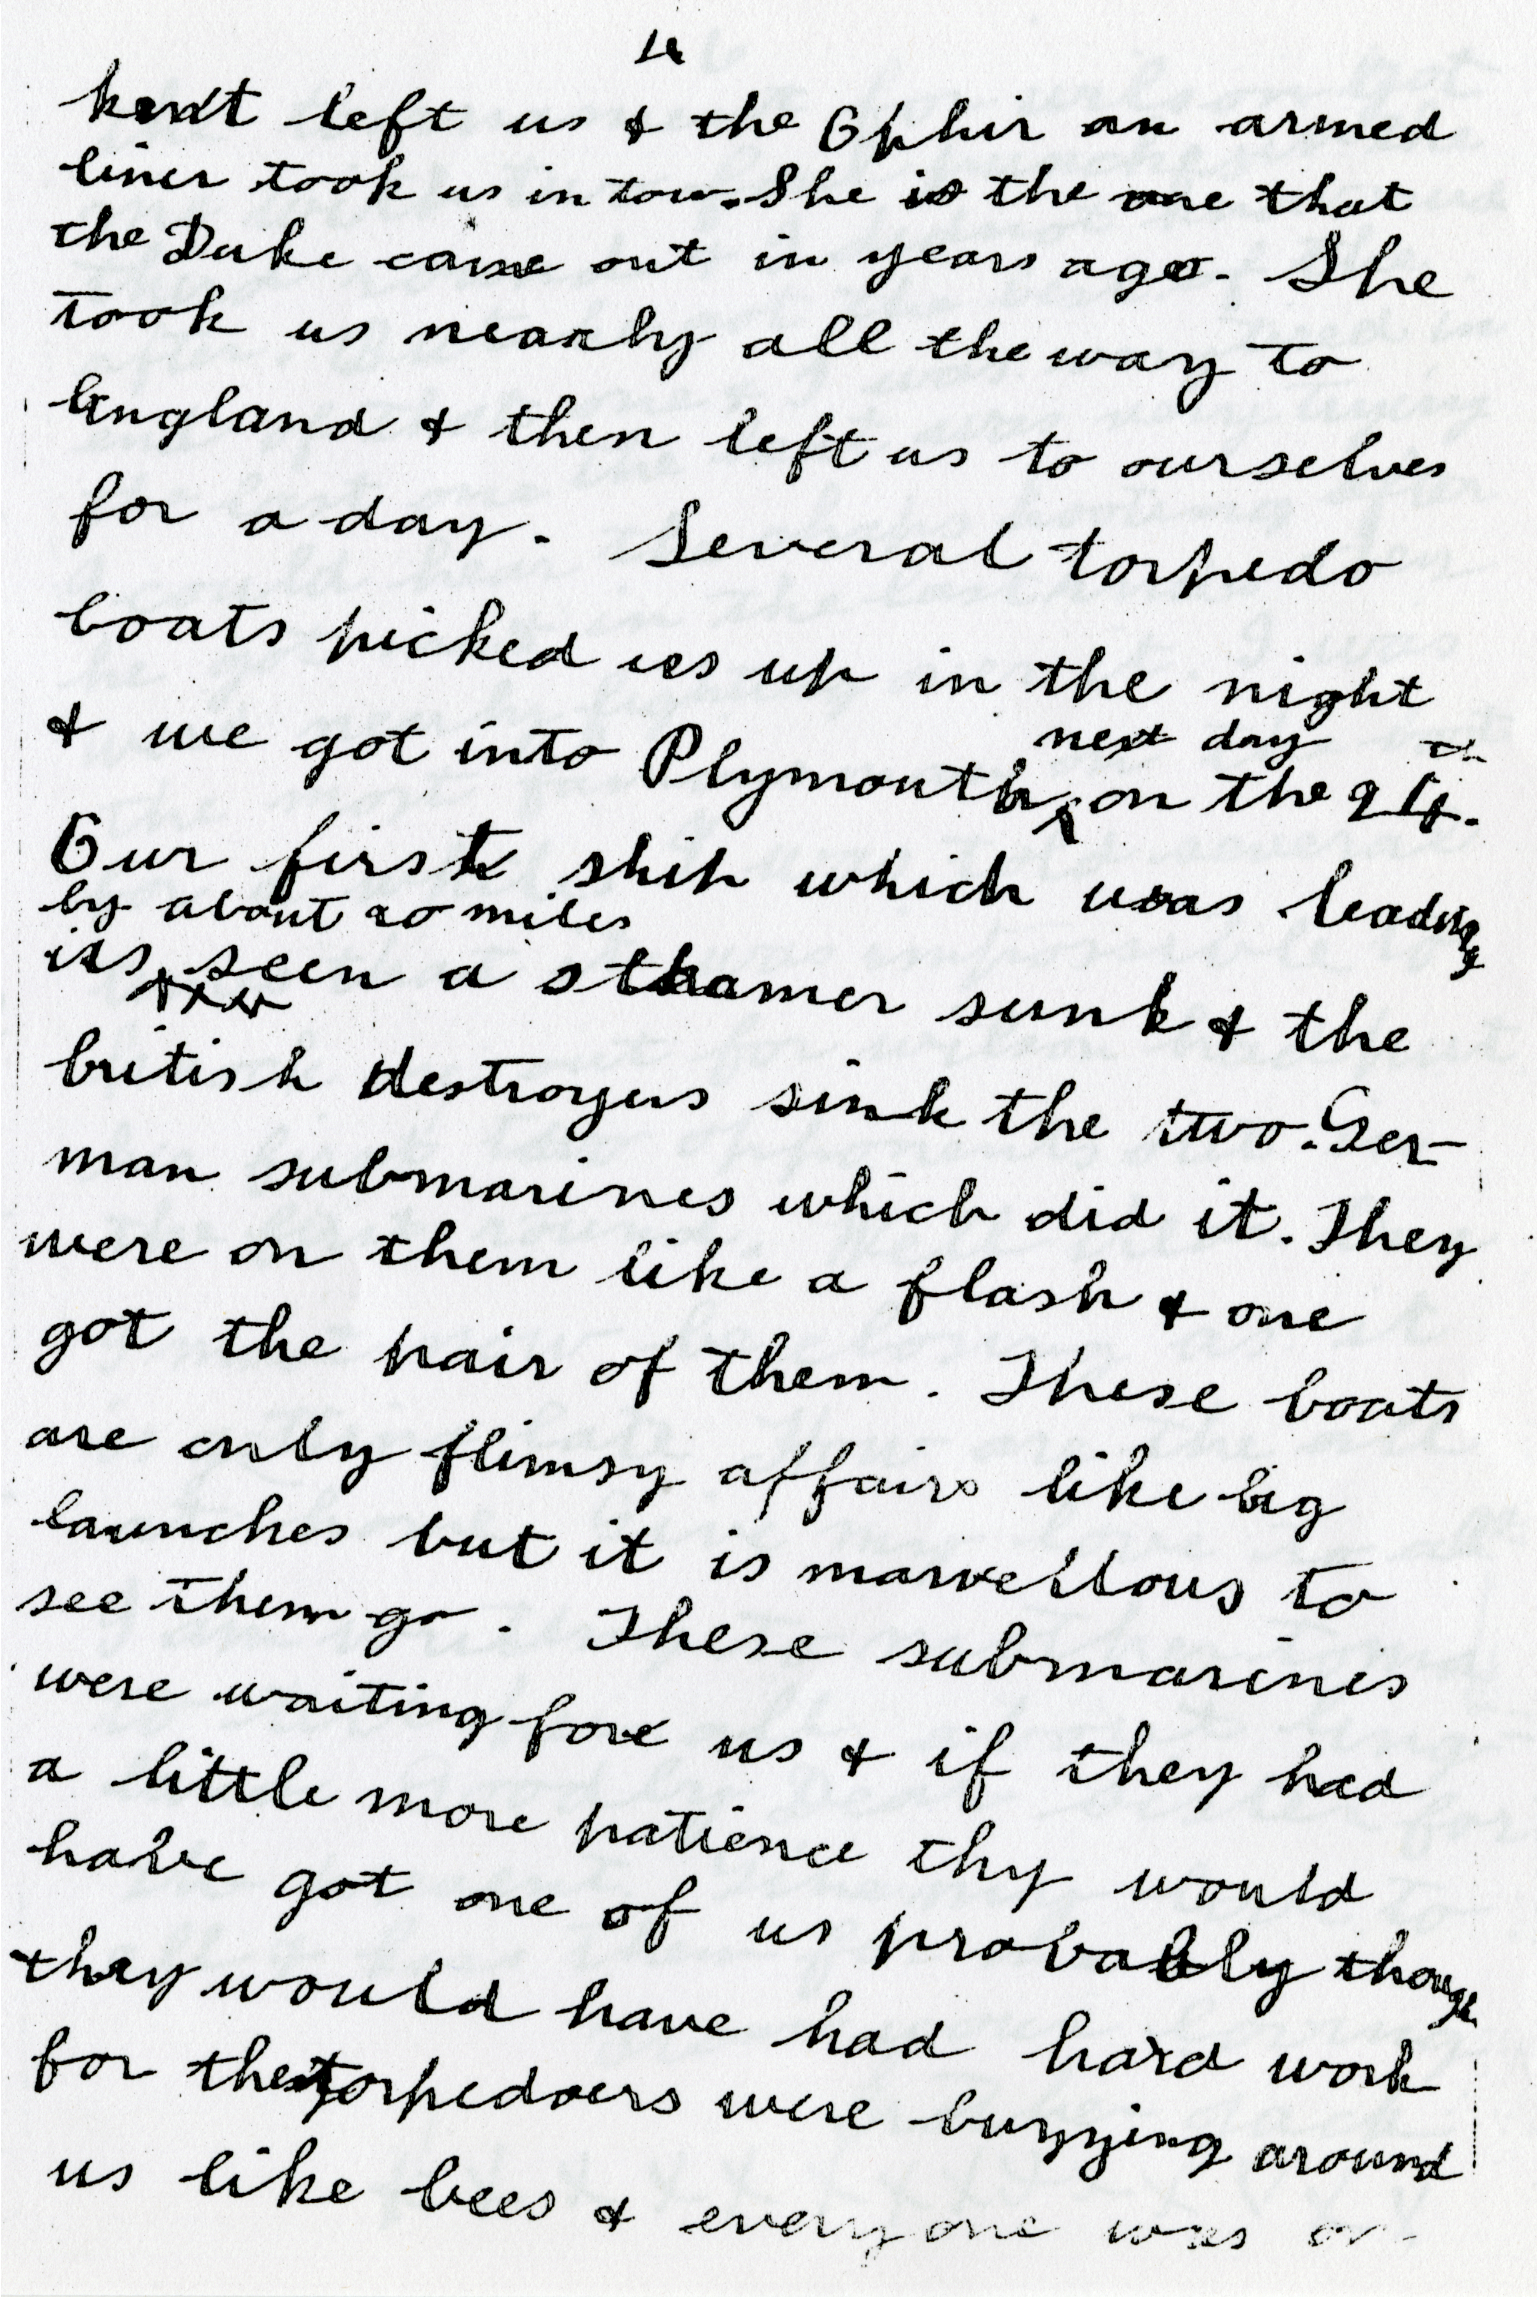 4
kent left us & the Ophir an armed
liner took us in tow. She is the one that
the Duke came out in years ago. She
took us nearly all the way to
England & then left us to ourselves
for a day. Several torpedo
boats picked us up in the night
next day
& we got into Plymouth on the
Our first ship which was leading
by about 20 miles
us seen a steamer sunk & the
british destroyers sink the two Ger-
man submarines which did it. They
were on them like a flash & one
got the pair of them. These boats
are only flimsy affairs like big
launches but it is marvellous to
see them go. These submarines
were waiting for us & if they had
a little more patience thy would
have got one of us probably though
they would have had hard work
for the torpedoers were buzzing around
us like bees & everyone was on